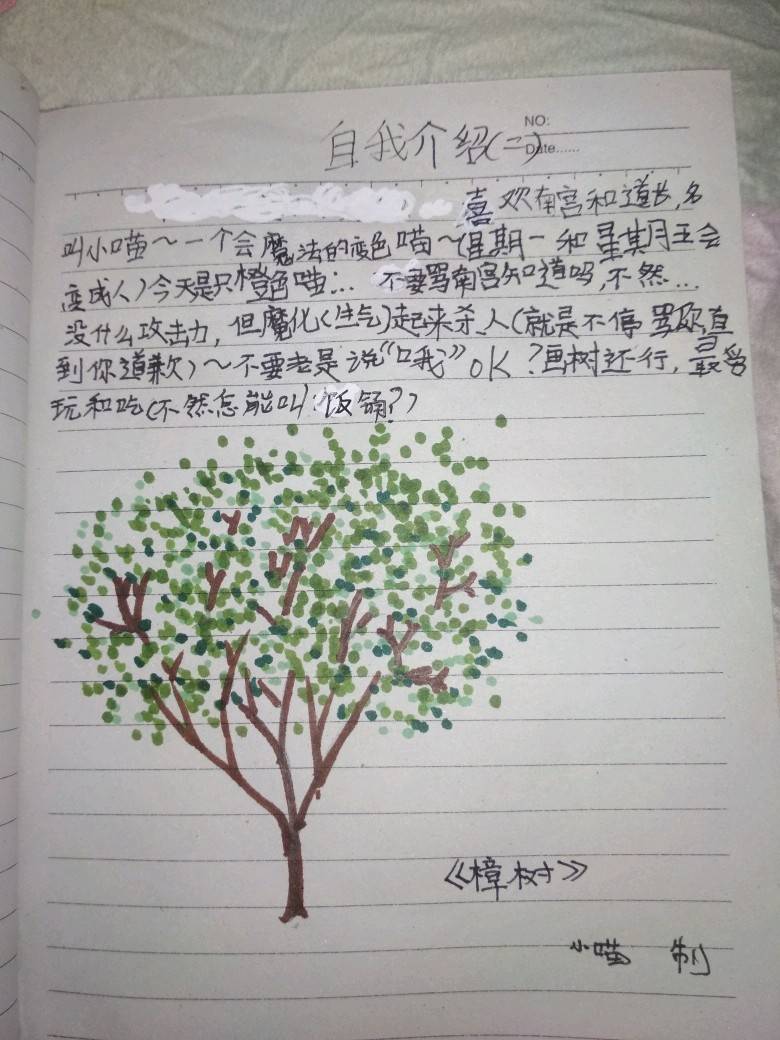 NO:
自我介绍(二)
Date......
喜欢南宫和道长,名
叫小喵～一个会魔法的变色喵～(星期一和星期五会
变成人)今天是只橙色喵:.. 不要骂南宫知道吗,不然...
没什么攻击力,但魔化(生气)起来杀人(就是不停骂你,直
到你道歉)～不要老是说“口我”OK?画树还行,最爱
玩和吃(不然怎能叫饭桶?)
《樟树》
小喵 制